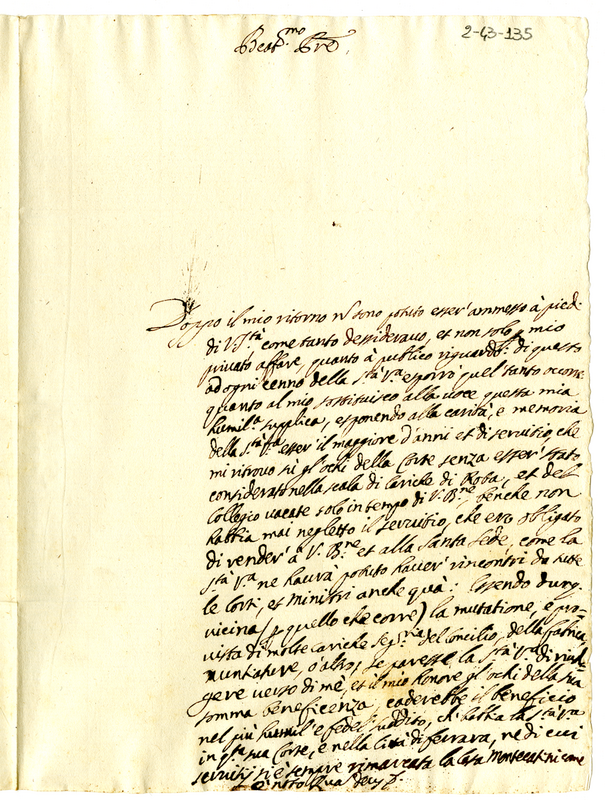 2-43-135
Beat.mo Pre,
Doppo il mio ritorno nō sono potuto esser' ammesso à piedi
di V. Stà come tanto dessideravo, et non solo p mio
privato affare, quanto à publico riguardo: di questo
ad ogni cenno della Stà Va esporrò quel tanto occorre
quanto al mio sostituisco alla voce questa mia
humila supplica, esponendo alla carità, e memoria
della Stà Va esser' il maggiore d'anni et di servitio, che
mi ritrovo sù gl'ochi della Corte senza esser' stato
considerato nella scala di cariche di Roba, et del
Collegio vacate solo in tempo di V. Bne, benche non
habbia mai negletto il servitio, che ero obligato
di render' à V. Bne et alla Santa Sede, come la
Stà Va ne haurà potuto haver' rincontri da tutte
le Corti, et Ministri anche quà: Essendo dunq.
vicina (p quello che corre) la mutatione, e pro-
vista di molte cariche Segria del Concilio, della fabrica,
nuntiature, ò altro, se paresse la Stà Va di rivol-
gere verso di mè, et il mio honore gl'ochi della sua
somma beneficenza, caderebbe il beneficio
nel più humil' e fedel suddito, ch' habbia la Stà Va
in qsta sua Corte, e nella Città di ferrara, ne di cui
servitij si è sempre rimarcata la Casa Montecatini come
è noto